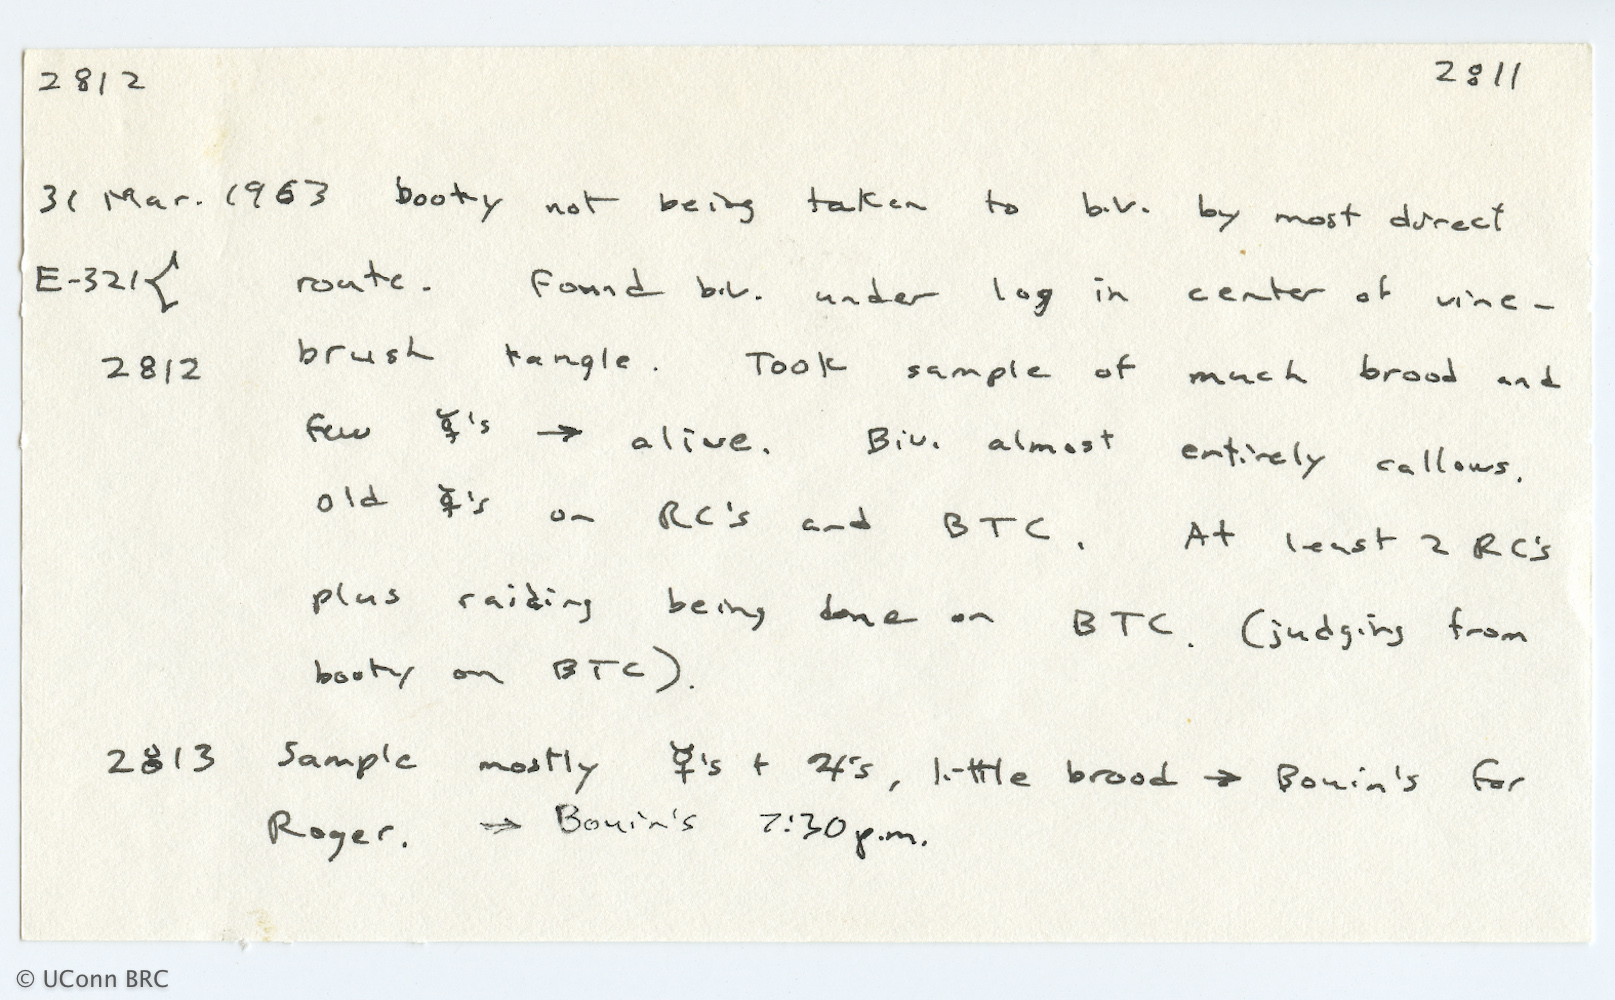 2812 2811
31 Mar. 1963 booty not being taken to biv. by most direct
E-321{ route. Found biv. under log in center of vine-
2812 brush tangle. Took sample of much brood and
few ☿'s → alive. Biv. almost entirely callows.
old ☿'s on RC's and BTC. At least 2 RC's
plus raiding being done on BTC. (judging from
booty on BTC).
2813 Sample mostly ☿'s + 4's, little brood → Bouin's for
Roger. → Bouin's 7:30 p.m.
© UConn BRC